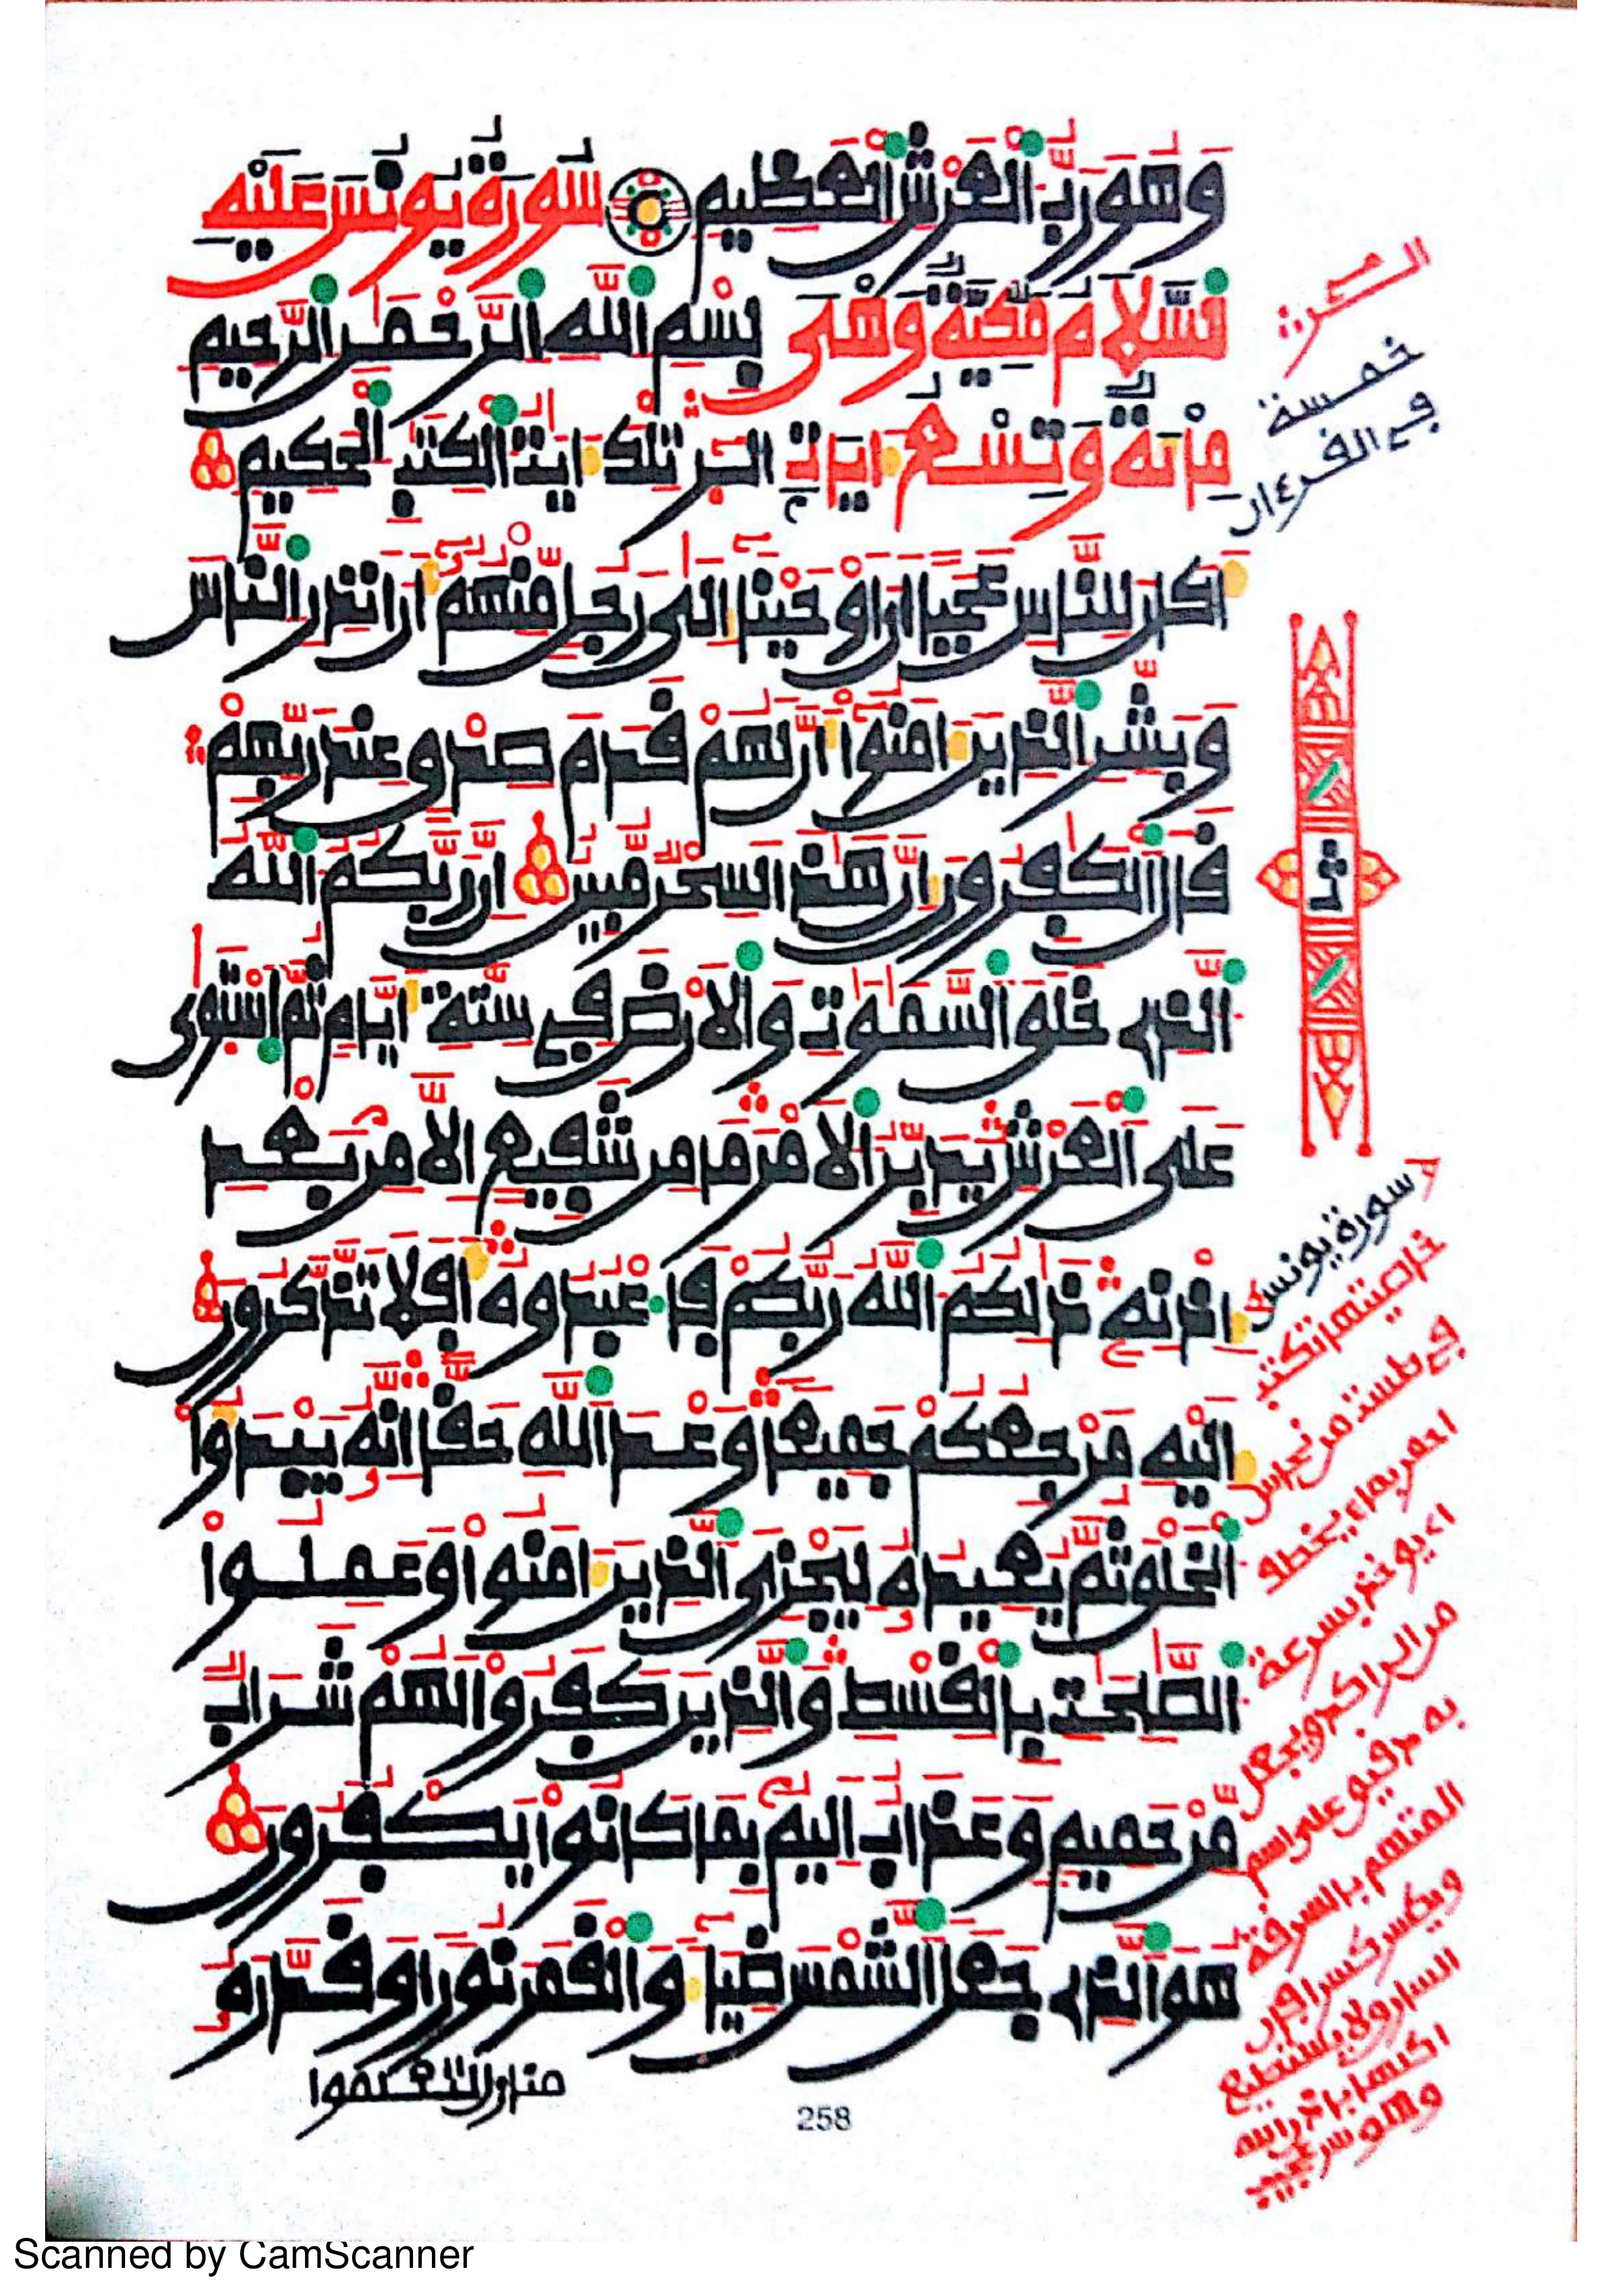 وَهُوَ رَبُّ الْعَرْشِ الْعَظِيمِ سُورَةُ يُونُسَ عَلَيْهِ
السَّلَامُ مَكِّيَّةٌ وَهِيَ بِسْمِ اللَّهِ الرَّحْمَٰنِ الرَّحِيمِ
مِائَةٌ وَتِسْعُ ءَايَاتٍ الٓر تِلْكَ ءَايَٰتُ الْكِتَٰبِ الْحَكِيمِ
أَكَانَ لِلنَّاسِ عَجَبًا أَنْ أَوْحَيْنَا إِلَىٰ رَجُلٍ مِّنْهُمُ أَنْ أَنذِرِ النَّاسَ
وَبَشِّرِ الَّذِينَ ءَامَنُوا أَنَّ لَهُمْ قَدَمَ صِدْقٍ عِندَ رَبِّهِمْ
قَالَ الْكَٰفِرُونَ إِنَّ هَٰذَا لَسِحْرٌ مُّبِينٌ إِنَّ رَبَّكُمُ اللَّهُ
الَّذِي خَلَقَ السَّمَٰوَٰتِ وَالْأَرْضَ فِي سِتَّةِ أَيَّامٍ ثُمَّ اسْتَوَىٰ
عَلَى الْعَرْشِ يُدَبِّرُ الْأَمْرَ مَا مِن شَفِيعٍ إِلَّا مِنۢ بَعْدِ
إِذْنِهِ ذَٰلِكُمُ اللَّهُ رَبُّكُمْ فَاعْبُدُوهُ أَفَلَا تَذَّكَّرُونَ
إِلَيْهِ مَرْجِعُكُمْ جَمِيعًا وَعْدَ اللَّهِ حَقًّا إِنَّهُ يَبْدَؤُا
الْخَلْقَ ثُمَّ يُعِيدُهُ لِيَجْزِيَ الَّذِينَ ءَامَنُوا وَعَمِلُوا
الصَّٰلِحَٰتِ بِالْقِسْطِ وَالَّذِينَ كَفَرُوا لَهُمْ شَرَابٌ
مِّنْ حَمِيمٍ وَعَذَابٌ أَلِيمٌ بِمَا كَانُوا يَكْفُرُونَ
هُوَ الَّذِي جَعَلَ الشَّمْسَ ضِيَاءً وَالْقَمَرَ نُورًا وَقَدَّرَهُ
منازل لتعلموا
258
خمسة
في القرءان
ثمن
سورة يونس
خاصيتهم تكتب
في طست من نحاس
به دقيق على اسم
المتهم بالسرقة
السارق لا يستطيع
اكلها باذن الله
وهو سر عجيب
Scanned by CamScanner